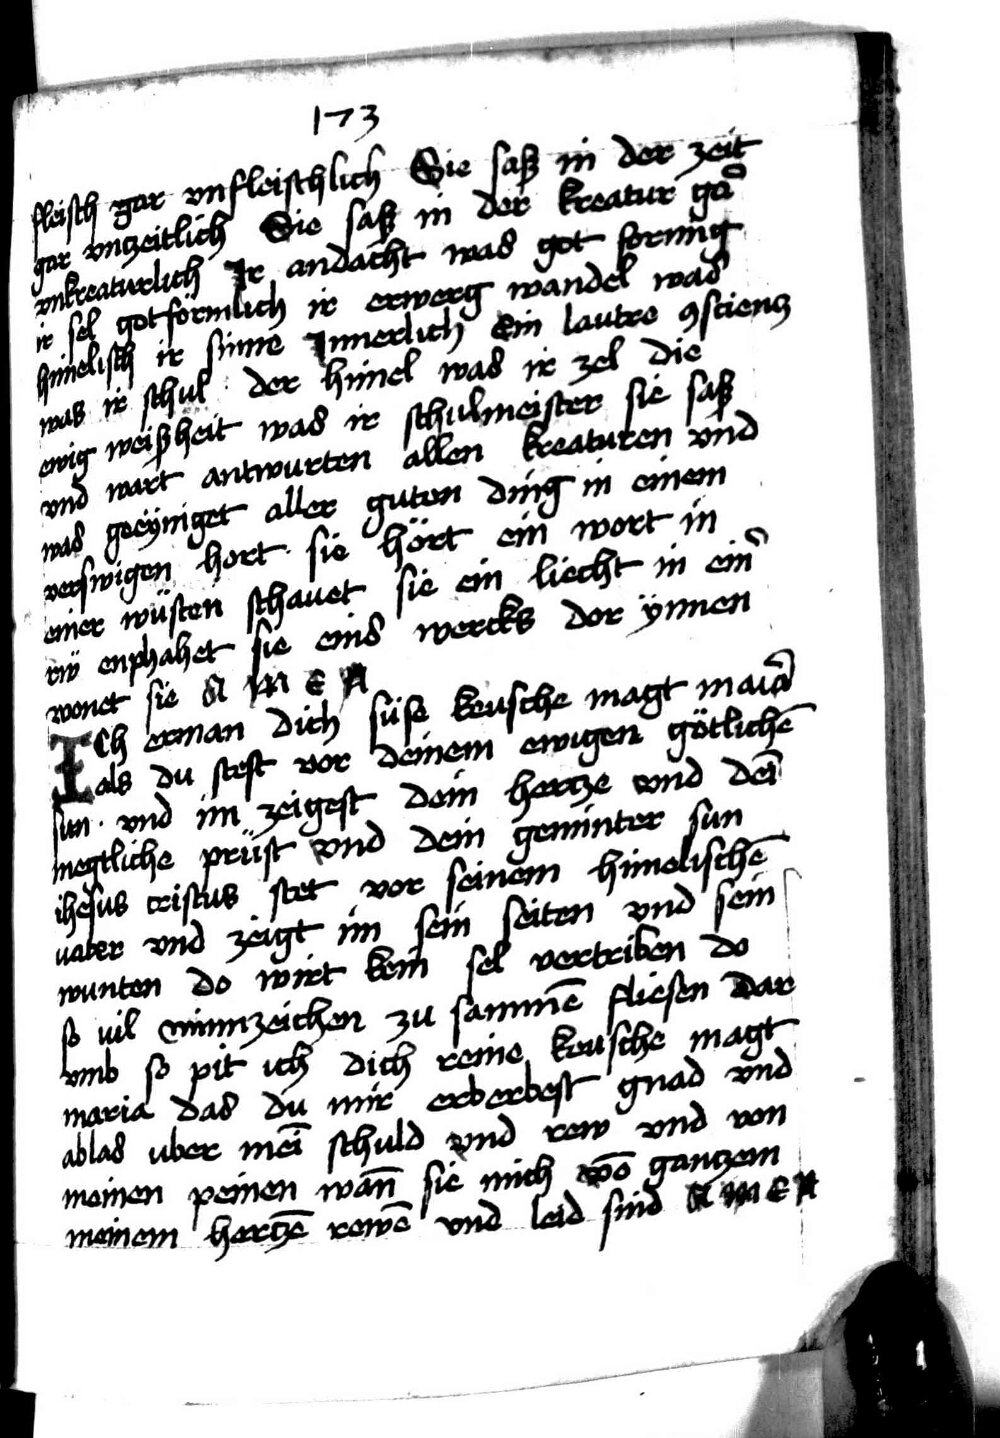 173
fleisch gar vnfleischlich Sie saß in der zeit
gar vntzeitlich Sie saß in der kreatur gar̄
vnkreaturlich Ir andacht was got formig
ir sel gotförmlich ir erwerg wandel was
himelisch ir sinne Innerlich Ein lautre ꝯscientz
was ir schul der himel was ir zel die
ewig weißheit was ir schulmeister sie saß
vnd wart antwurten allen kreaturen vnd
was geeyniget aller guten ding in einem
verswigen hort · sie hört ein wort in
einer wüsten schauet sie ein liecht in ein̄
rw enphahet sie eins wercks dor ynnen
wonet sie A M E N
Ich erman dich süse keusche magt maiā
als du stest vor deinem ewigen götlichē
sun · vnd im zeigest dein hertze vnd dei̅
megtliche prüst vnd dein geminter sun
ihesus cristus stet vor seinem himelischē
uater vnd zeigt im sein seiten vnd sein
wunten do wirt kein sel vertriben do
so uil minnzeichen zu sammē fliesen dar
vmb so pit ich dich reine keusche magt
maria das du mir erberbest gnad vnd
ablas uber mei̅ schuld vnd rew vnd von
meinen peinen wan̄ sie mich vō gantzem
meinem hertzē rewē vnd leid sind A M E N